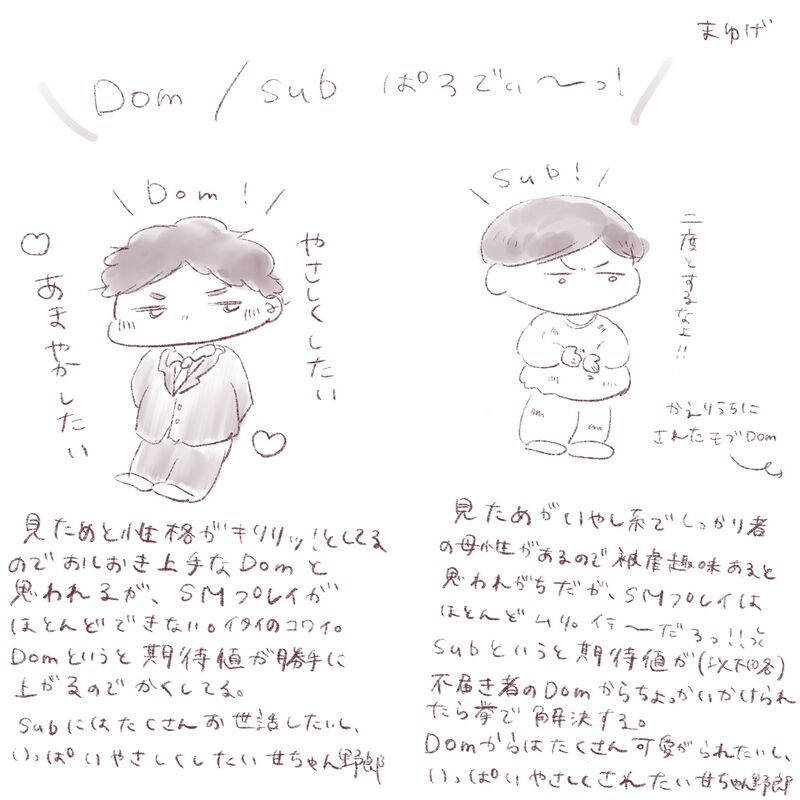 まゆげ
\ Dom / sub ぱろでぃ〜っ! /
\ Dom! /
やさしくしたい
♡ あまやかしたい ♡
見ためと性格がキリリッ!としてる
のでおしおき上手なDomと
思われるが、SMプレイが
ほとんどできない。イタイのコワイ。
Domというと期待値が勝手に
上がるのでかくしてる。
Subにはたくさんお世話したいし、
いっぱいやさしくしたい甘ちゃん野郎
\ Sub! /
二度とするなよ!!
かえりうちに
されたモブDom
見ためがいやし系でしっかり者
の母性があるので被虐趣味あると
思われがちだが、SMプレイは
ほとんどムリ。イテ〜だろっ!!
Subというと期待値が(以下略)
不届き者のDomからちょっかいかけられ
たら拳で解決する。
Domからはたくさん可愛がられたいし、
いっぱいやさしくされたい甘ちゃん野郎